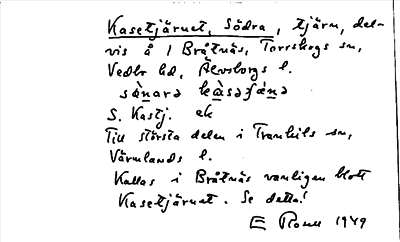 Kasetjärnet, Södra, tjärn, del-
vis å 1 Bråtnäs, Torrskogs sn,
Vedbo hd, Älvsborgs l.
sànarə kàsəʃæ̀nə
S. Kastj. ek
Till största delen i Trankils sn,
Värmlands l.
Kallas i Bråtnäs vanligen blott
Kasetjärnet. Se detta!
E Rosell 1949